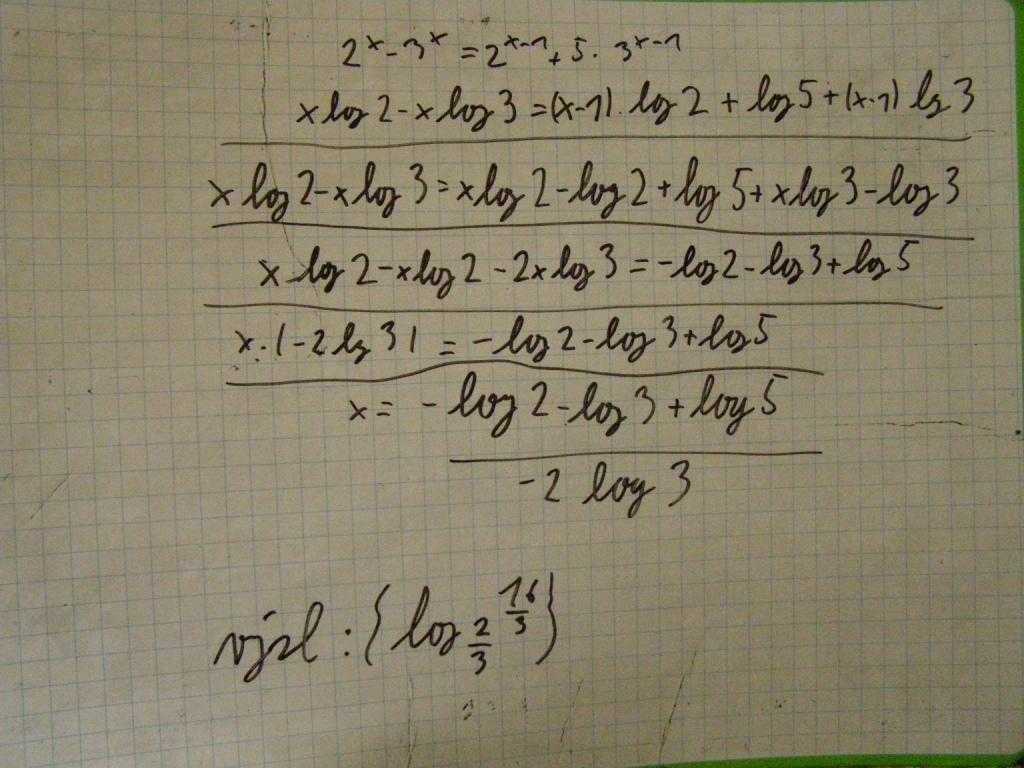 2^x - 3^x = 2^(x-1) + 5 · 3^(x-1)
x log 2 - x log 3 = (x-1) · log 2 + log 5 + (x-1) lg 3
x log 2 - x log 3 = x log 2 - log 2 + log 5 + x log 3 - log 3
x log 2 - x log 2 - 2x log 3 = -log 2 - log 3 + log 5
x · (-2 lg 3) = -log 2 - log 3 + log 5
x = -log 2 - log 3 + log 5
-2 log 3
výsl : {log_(2/3) 16/3}